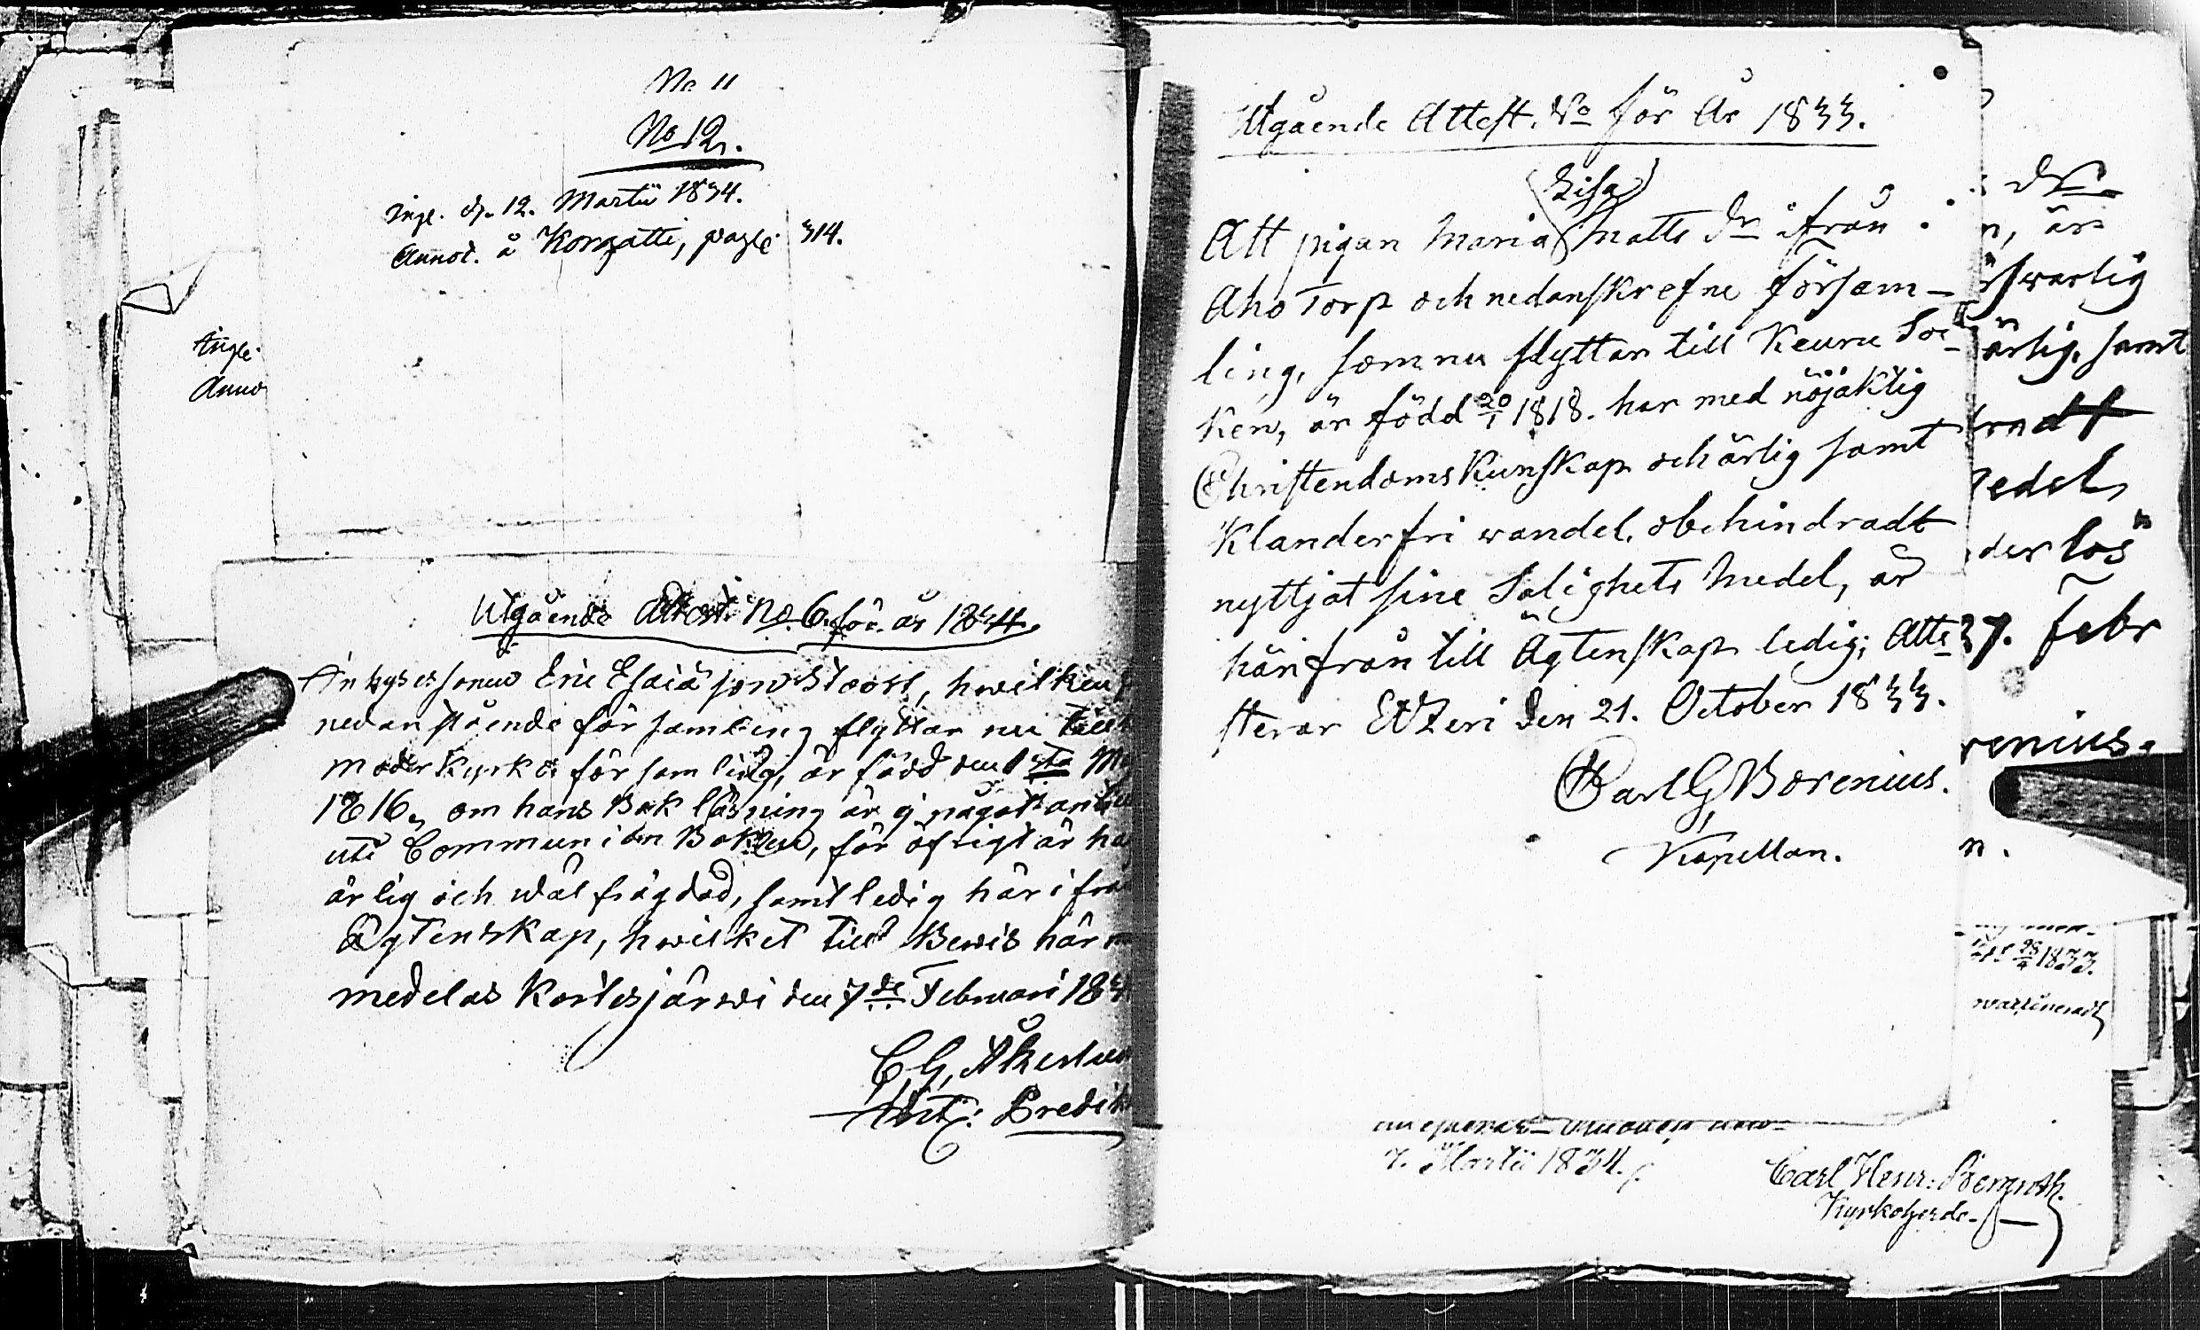 No 11
No 12.
Ingl. d. 12. Martii 1834.
Annot. å Kongatti, pagl. 314.
Ingl.
Anno
Utgående Attest No. 6. för år 1834.
Enkygessonen Eric Esaiä son Stoort, hwilken
nedanstående församling flyttar nu till
moder Kyrko församling, är född den 1sta M
1816, om hans Bok läsning är ej något an
uti Communion Boken, för öfrigt är ha
ärlig och wäl frägdad, samt ledig här ifrå
Ägtenskap, hwilket till Bewis här m
medelas Kortesjärwi den 7de Februari 183
C. G. Åkerlu
Adit: Predik
Utgående Attest. No för År 1833.
(Lisa)
Att pigan Maria Matts dr ifrån
Aho Torp och nedanskrefne försam-
ling, som nu flyttar till Keuru Soc-
ken, är född 20/1 1818. har med nöjaktig
Christendoms Kunskap och ärlig samt
Klanderfri wandel, obehindradt
nyttjat sine Salighets medel, är
härifrån till Ägtenskap ledig; Atte-
sterar Etzeri den 21. October 1833.
Carl G Borenius.
Kapellan.
dr
n, är
swarlig
ärlig, samt
radt
medel,
der lös
27. Febr
renius.
n.
28/4 1833.
7. Martii 1834.
Carl Henr: Bengroth.
Kyrkoherde.